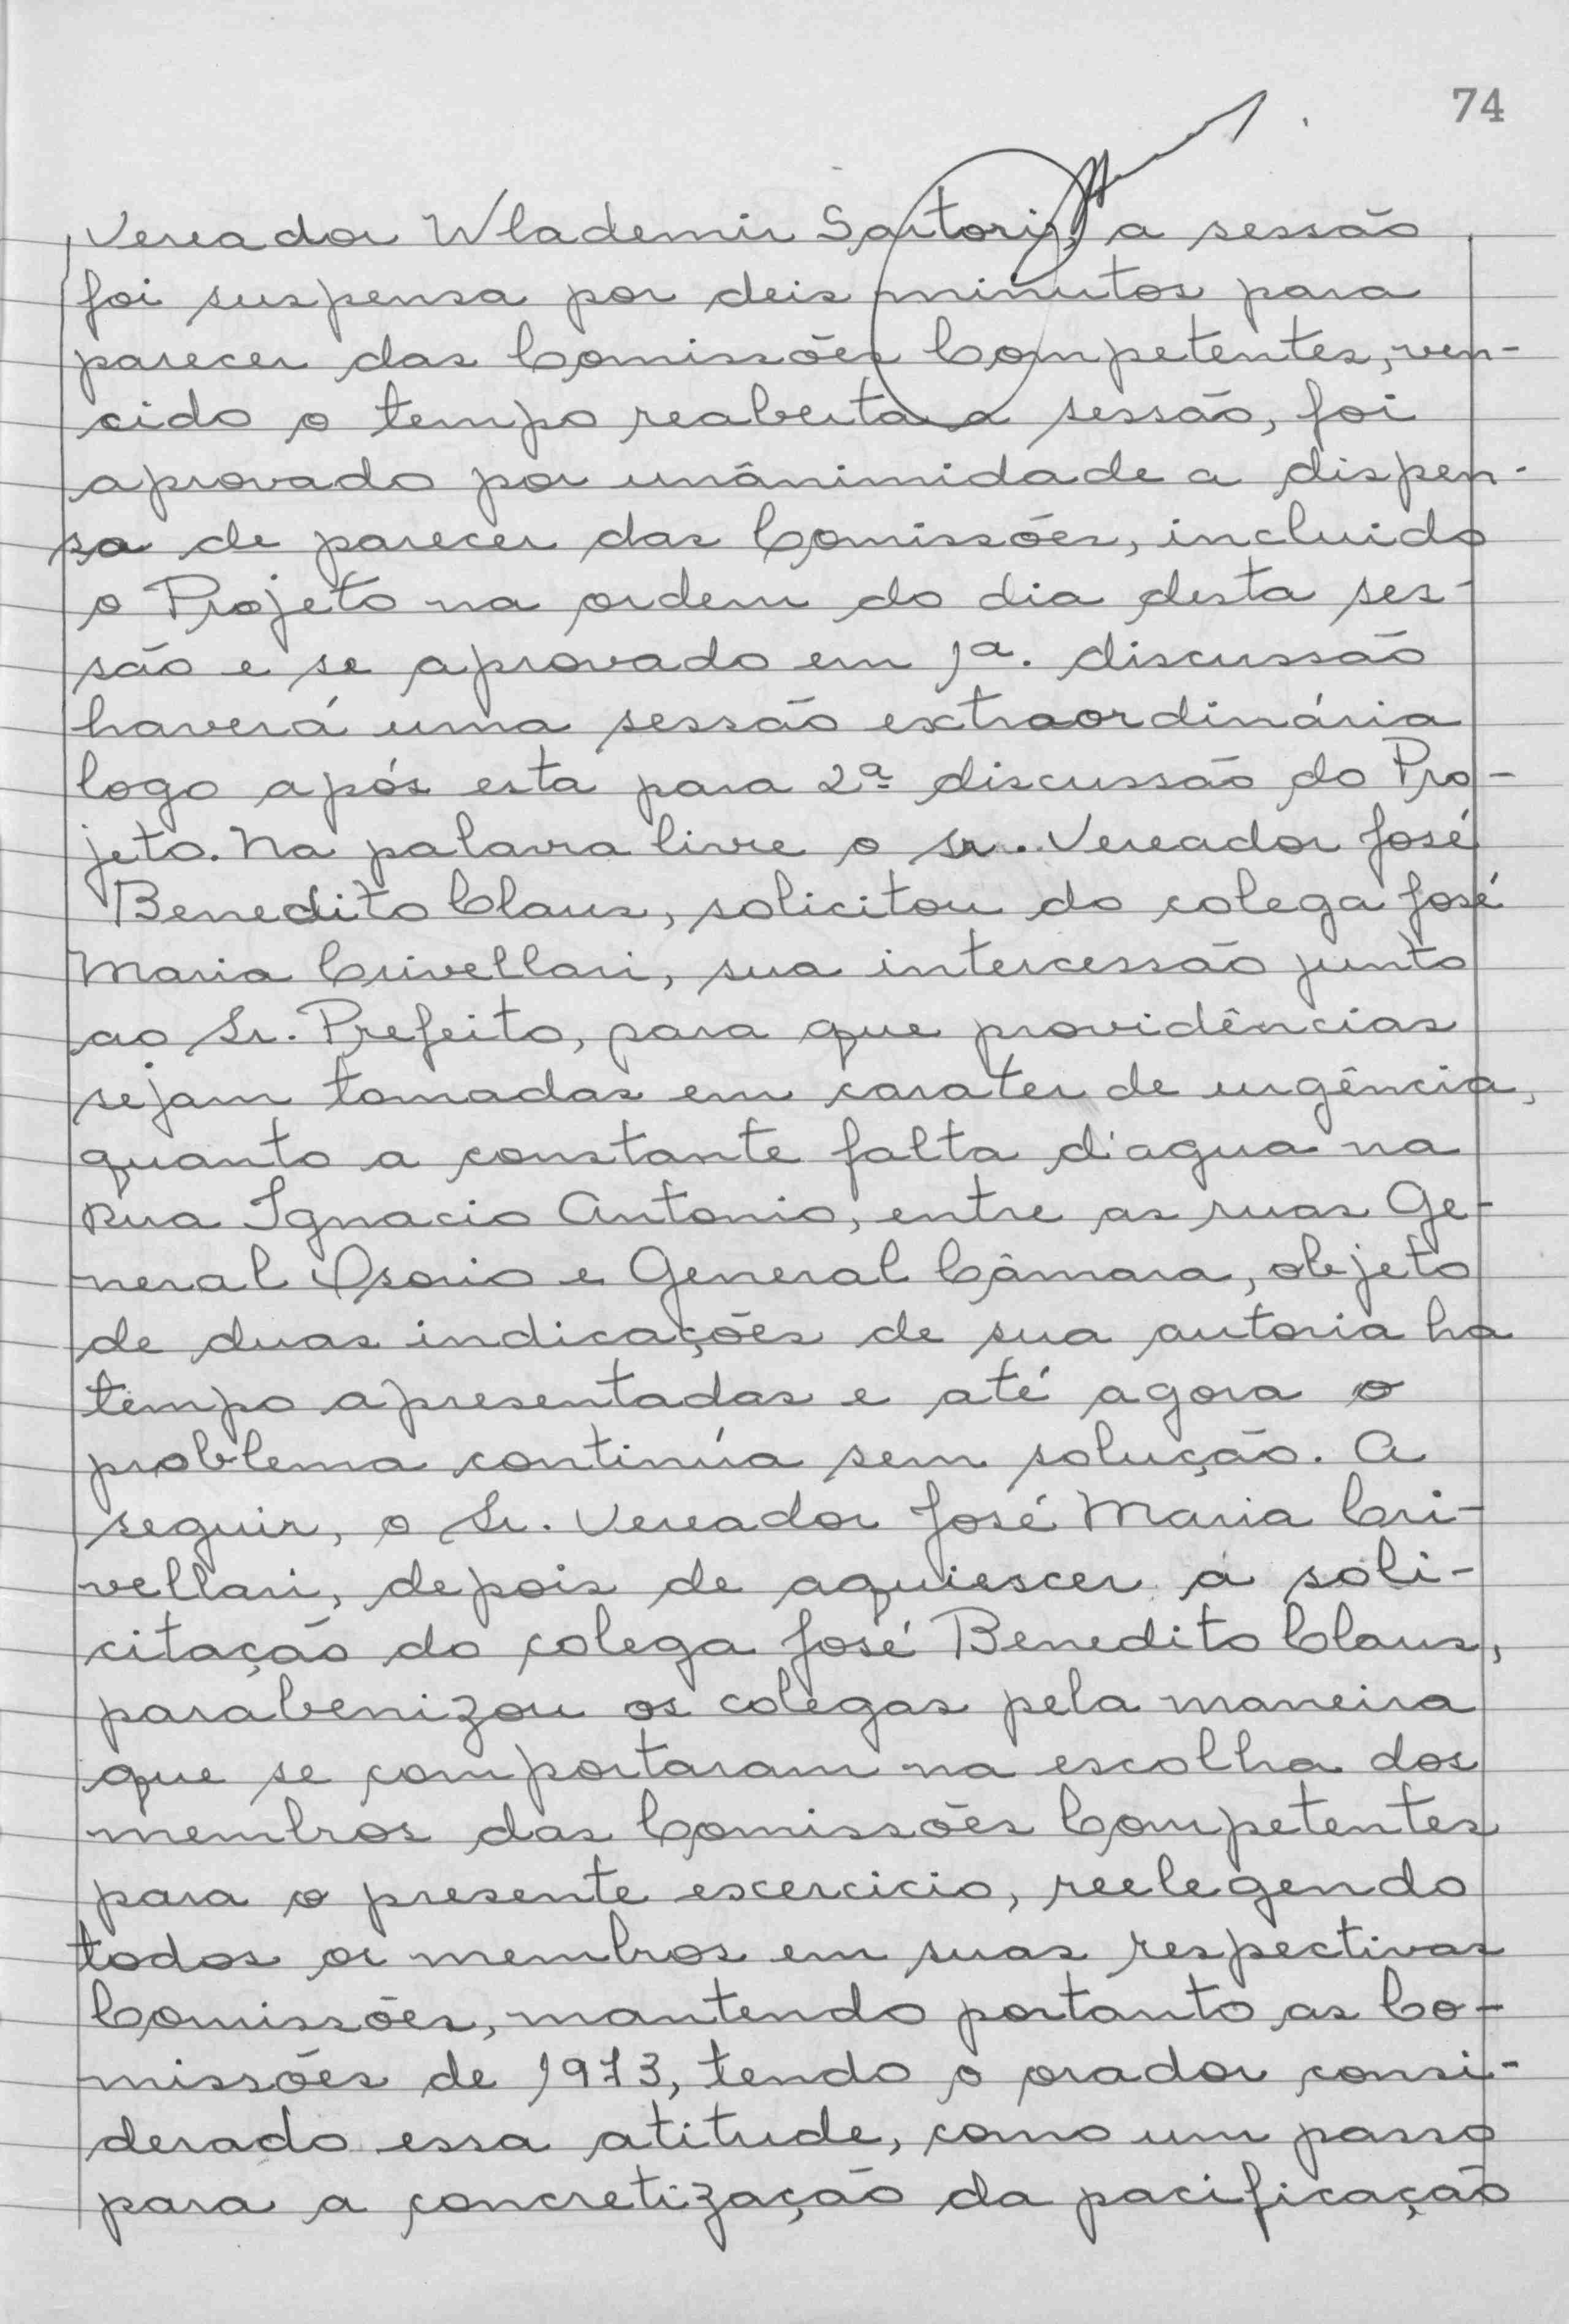 74
Vereador Wlademir Sartori, a sessão
foi suspensa por deis minutos para
parecer das Comissões Competentes, ven-
cido o tempo reaberta a sessão, foi
aprovado por unânimidade a dispen-
sa de parecer das Comissões, incluido
o Projeto na ordem do dia desta ses-
são e se aprovado em 1a. discussão
haverá uma sessão extraordinária
logo após esta para 2a discussão do Pro-
jeto. Na palavra livre o sr. Vereador José
Benedito Claus, solicitou do colega José
Maria Crivellari, sua intercessão junto
ao Sr. Prefeito, para que providências
sejam tomadas em carater de urgência,
quanto a constante falta d'agua na
Rua Ignacio Antonio, entre as ruas Ge-
neral Osorio e General Câmara, objeto
de duas indicações de sua autoria ha
tempo apresentadas e até agora o
problema continúa sem solução. A
seguir, o Sr. Vereador José Maria Cri-
vellari, depois de aquiescer á soli-
citação do colega José Benedito Claus,
parabenizou os colegas pela maneira
que se comportaram na escolha dos
membros das Comissões Competentes
para o presente escercicio, reelegendo
todos os membros em suas respectivas
Comissões, mantendo portanto as Co-
missões de 1973, tendo o orador consi-
derado essa atitude, como um passo
para a concretização da pacificação